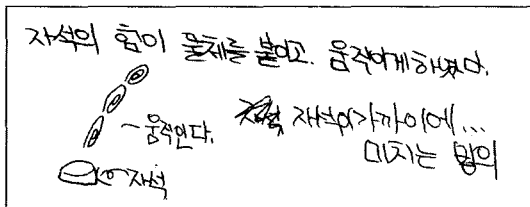 자석의 힘이 물체를 붙이고. 움직이게하였다.
~움직인다.
자석
자석이가까이에...
미치는 범위